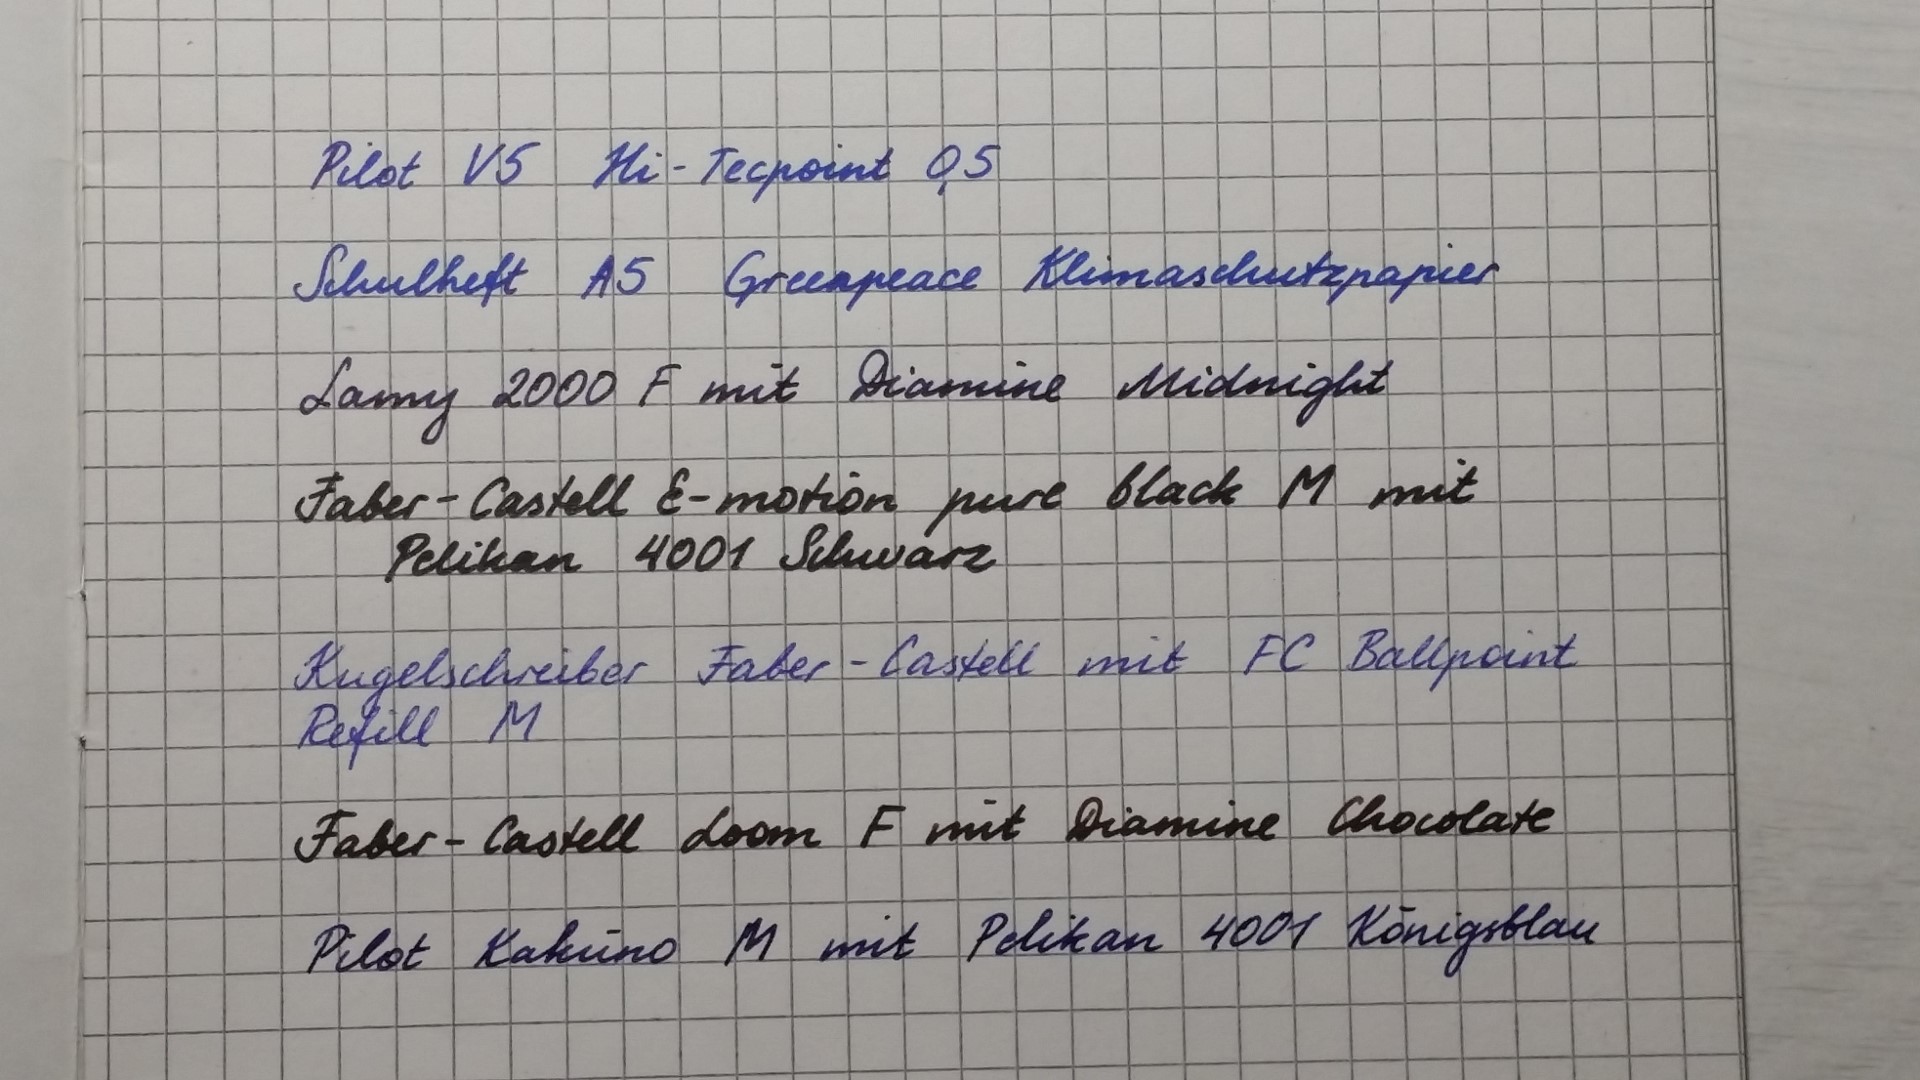 Pilot V5 Hi-Tecpoint 0,5
Schulheft A5 Greenpeace Klimaschutzpapier
Lamy 2000 F mit Diamine Midnight
Faber-Castell E-motion pure black M mit
Pelikan 4001 Schwarz
Kugelschreiber Faber-Castell mit FC Ballpoint
Refill M
Faber-Castell Loom F mit Diamine Chocolate
Pilot Kakuno M mit Pelikan 4001 Königsblau